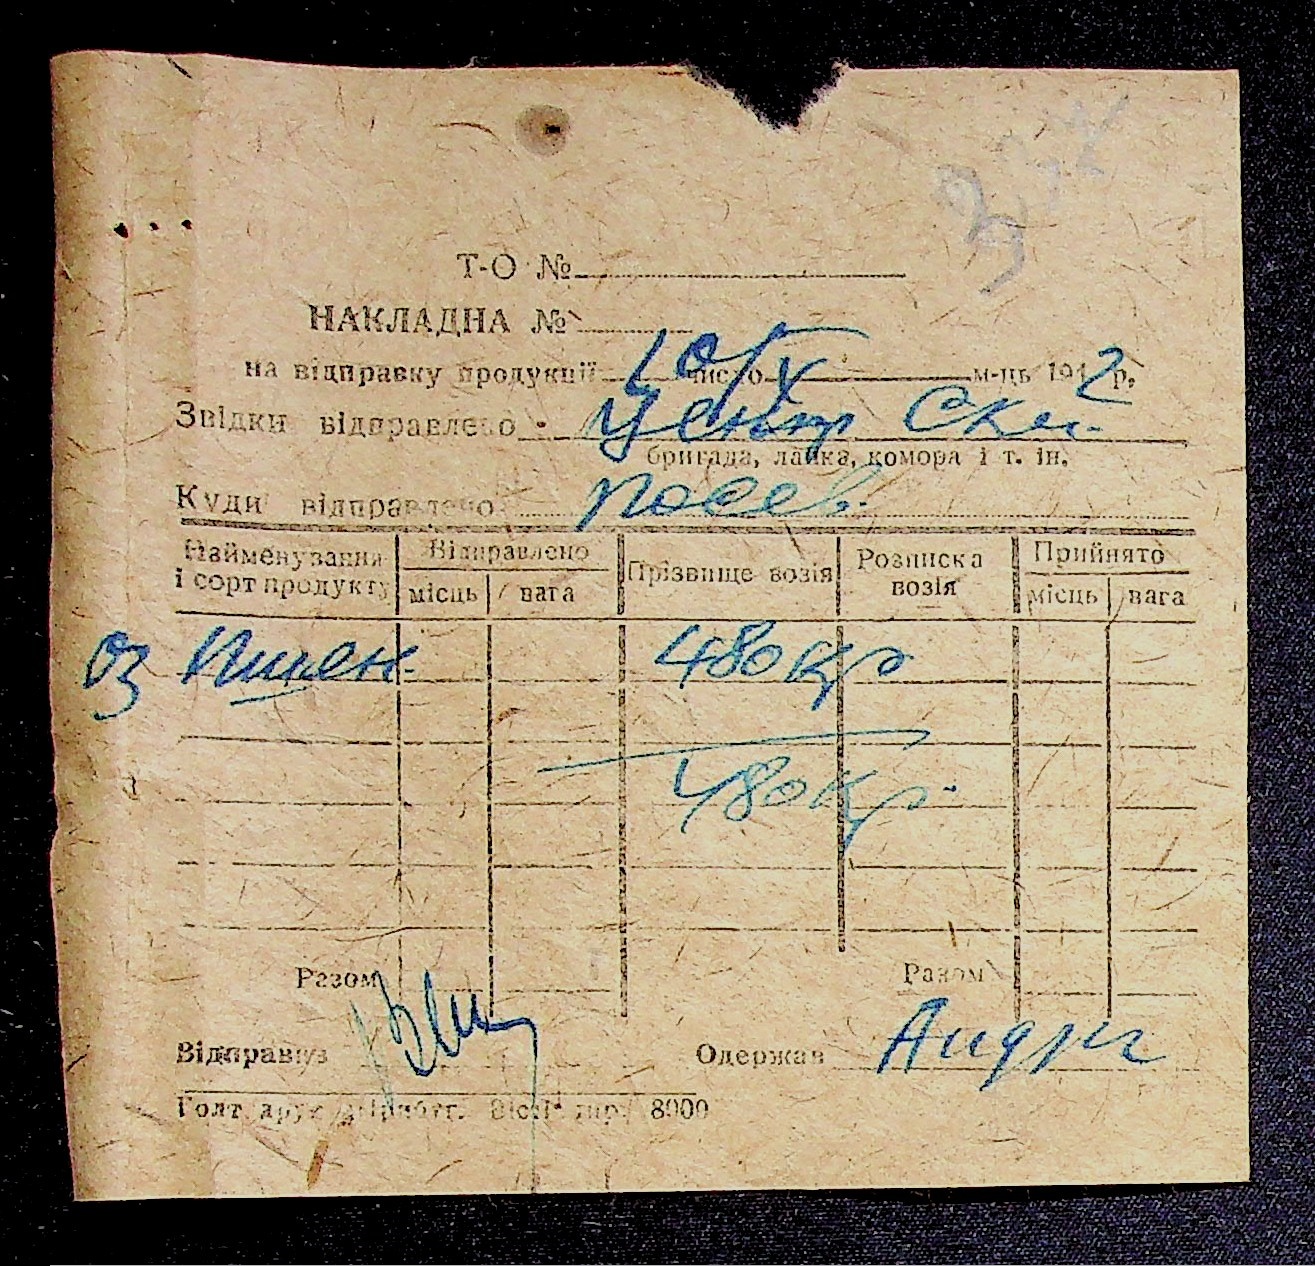 Т-О №
НАКЛАДНА №
на відправку продукції 10/X число м-ць 1942 р,
Звідки відправлено Центр Скл.
бригада, ланка, комора і т. ін,
Куди відправлено посев.
Найменування і сорт продукту Відправлено Прізвище возія Розписка возія Прийнято
місць вага місць вага
оз Пшен. 480 кг
480 кг.
Разом Разом
Відправив Одержав Андрі
8000